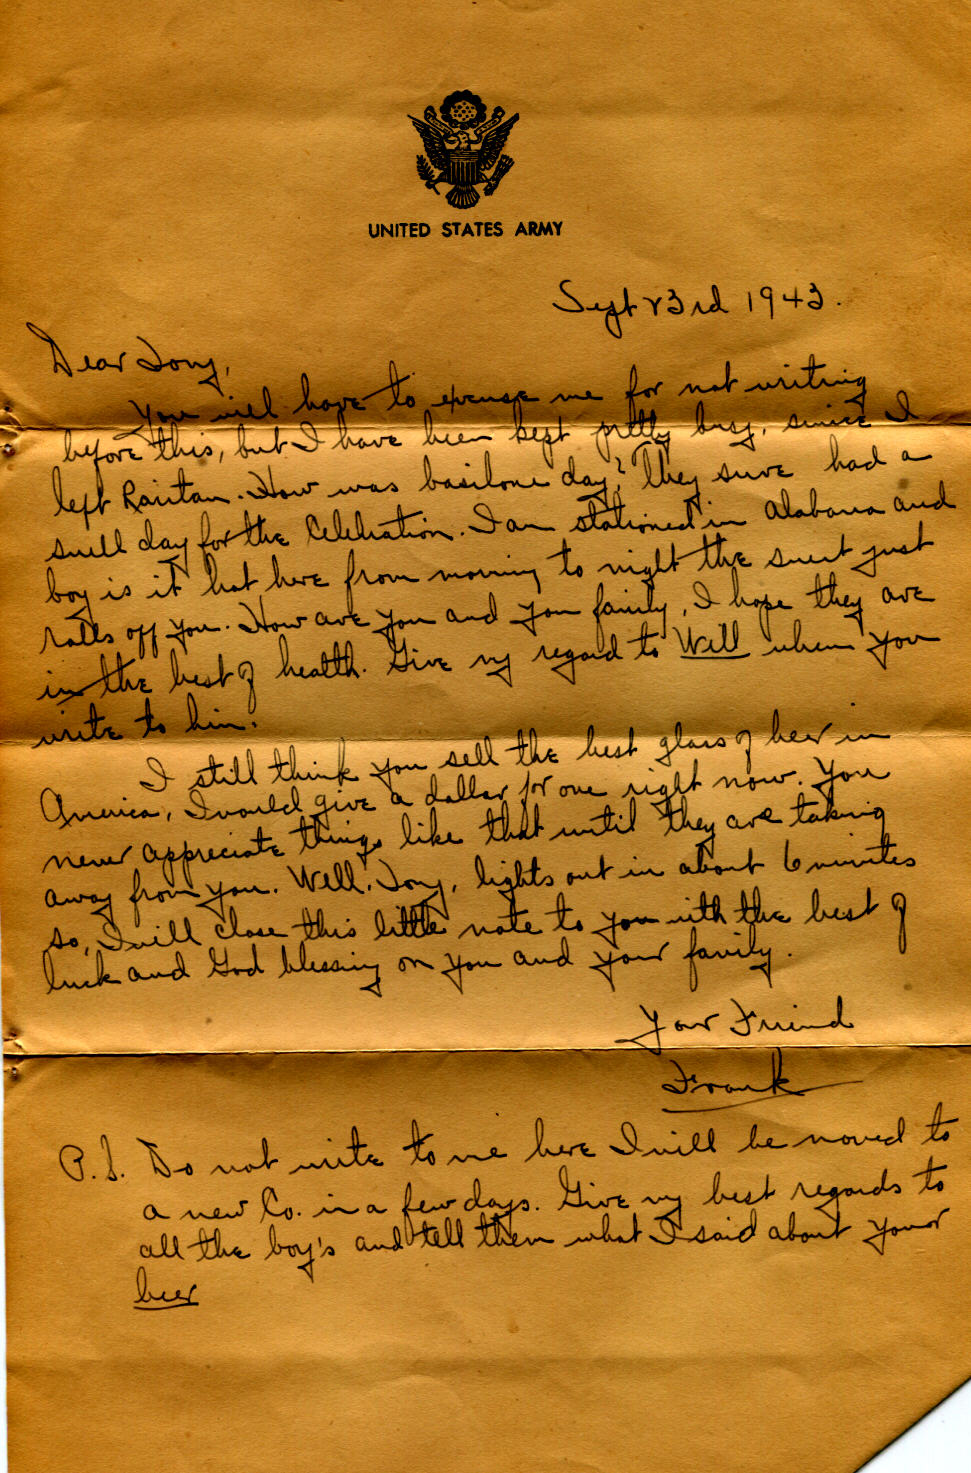 UNITED STATES ARMY
Sept 23rd 1943.
Dear Tony,
You will have to excuse me for not writing
before this, but I have been kept pretty busy, since I
left Raritan. How was basilone day? They sure had a
swell day for the Celebration. I am stationed in Alabama and
boy is it hot here from morning to night the sweat just
rolls off you. How are you and you family, I hope they are
in the best of health. Give my regard to Will when you
write to him.
I still think you sell the best glass of beer in
America, I would give a dollar for one right now. You
never appreciate things like that until they are taking
away from you. Well, Tony, lights out in about 6 minutes
so, I will close this little note to you with the best of
luck and God blessing on you and your family.
Your Friend
Frank
P.S. Do not write to me here I will be moved to
a new Co. in a few days. Give my best regards to
all the boy's and tell them what I said about your
beer